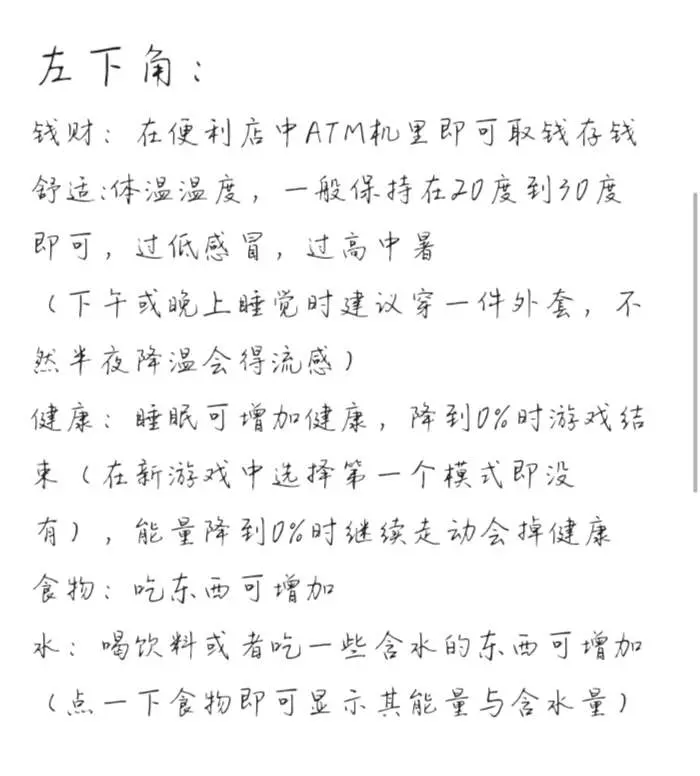 左下角：
钱财：在便利店中ATM机里即可取钱存钱
舒适:体温温度，一般保持在20度到30度
即可，过低感冒，过高中暑
（下午或晚上睡觉时建议穿一件外套，不
然半夜降温会得流感）
健康：睡眠可增加健康，降到0%时游戏结
束（在新游戏中选择第一个模式即没
有），能量降到0%时继续走动会掉健康
食物：吃东西可增加
水：喝饮料或者吃一些含水的东西可增加
（点一下食物即可显示其能量与含水量）